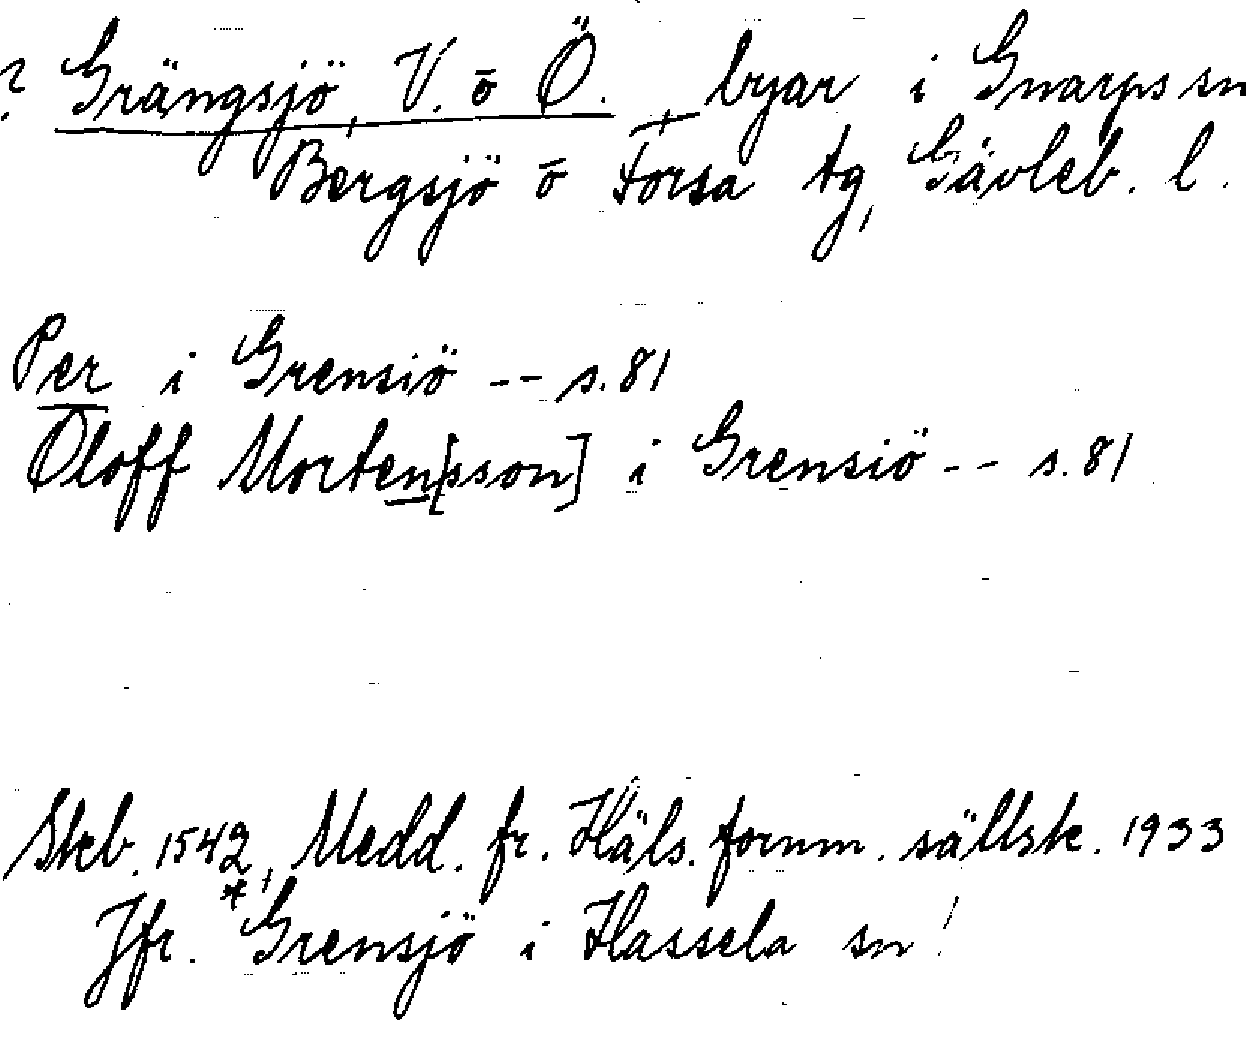 ? Grängsjö, V. o Ö., byar i Gnarps sn
Bergsjö o Forsa tg, Gävleb. l.
Per i Grensiö -- s. 81
Oloff Morten[sson] i Grensiö -- s. 81
Skb. 1542, Medd. fr. Häls. fornm. sällsk. 1933
Jfr. *Grensjö i Hassela sn!